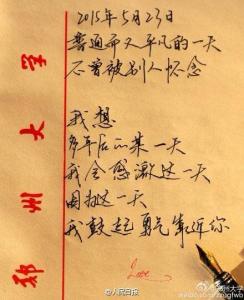 2015年5月23日
普通而又平凡的一天
不曾被别人怀念
我想
多年后的某一天
我会感激这一天
因为这一天
我鼓起勇气靠近你
Love
郑州大学
@人民日报